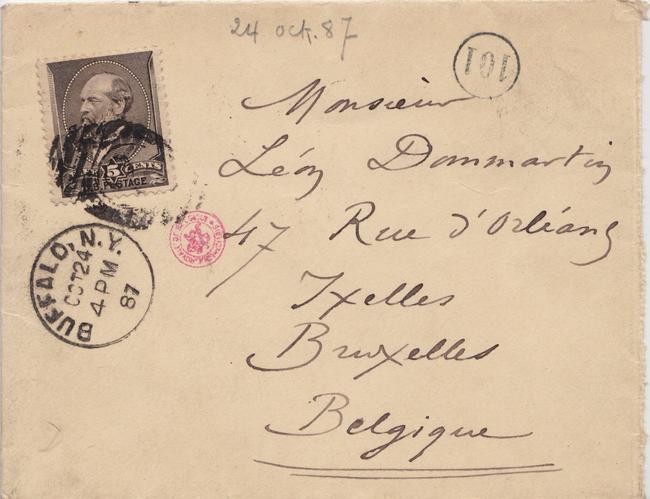 24 oct. 87
101
5 CENTS
U.S. POSTAGE
Monsieur
Léon Dommartin
47 Rue d'Orléans
Ixelles
Bruxelles
Belgique
BUFFALO, N.Y.
OCT 24
4 PM
87